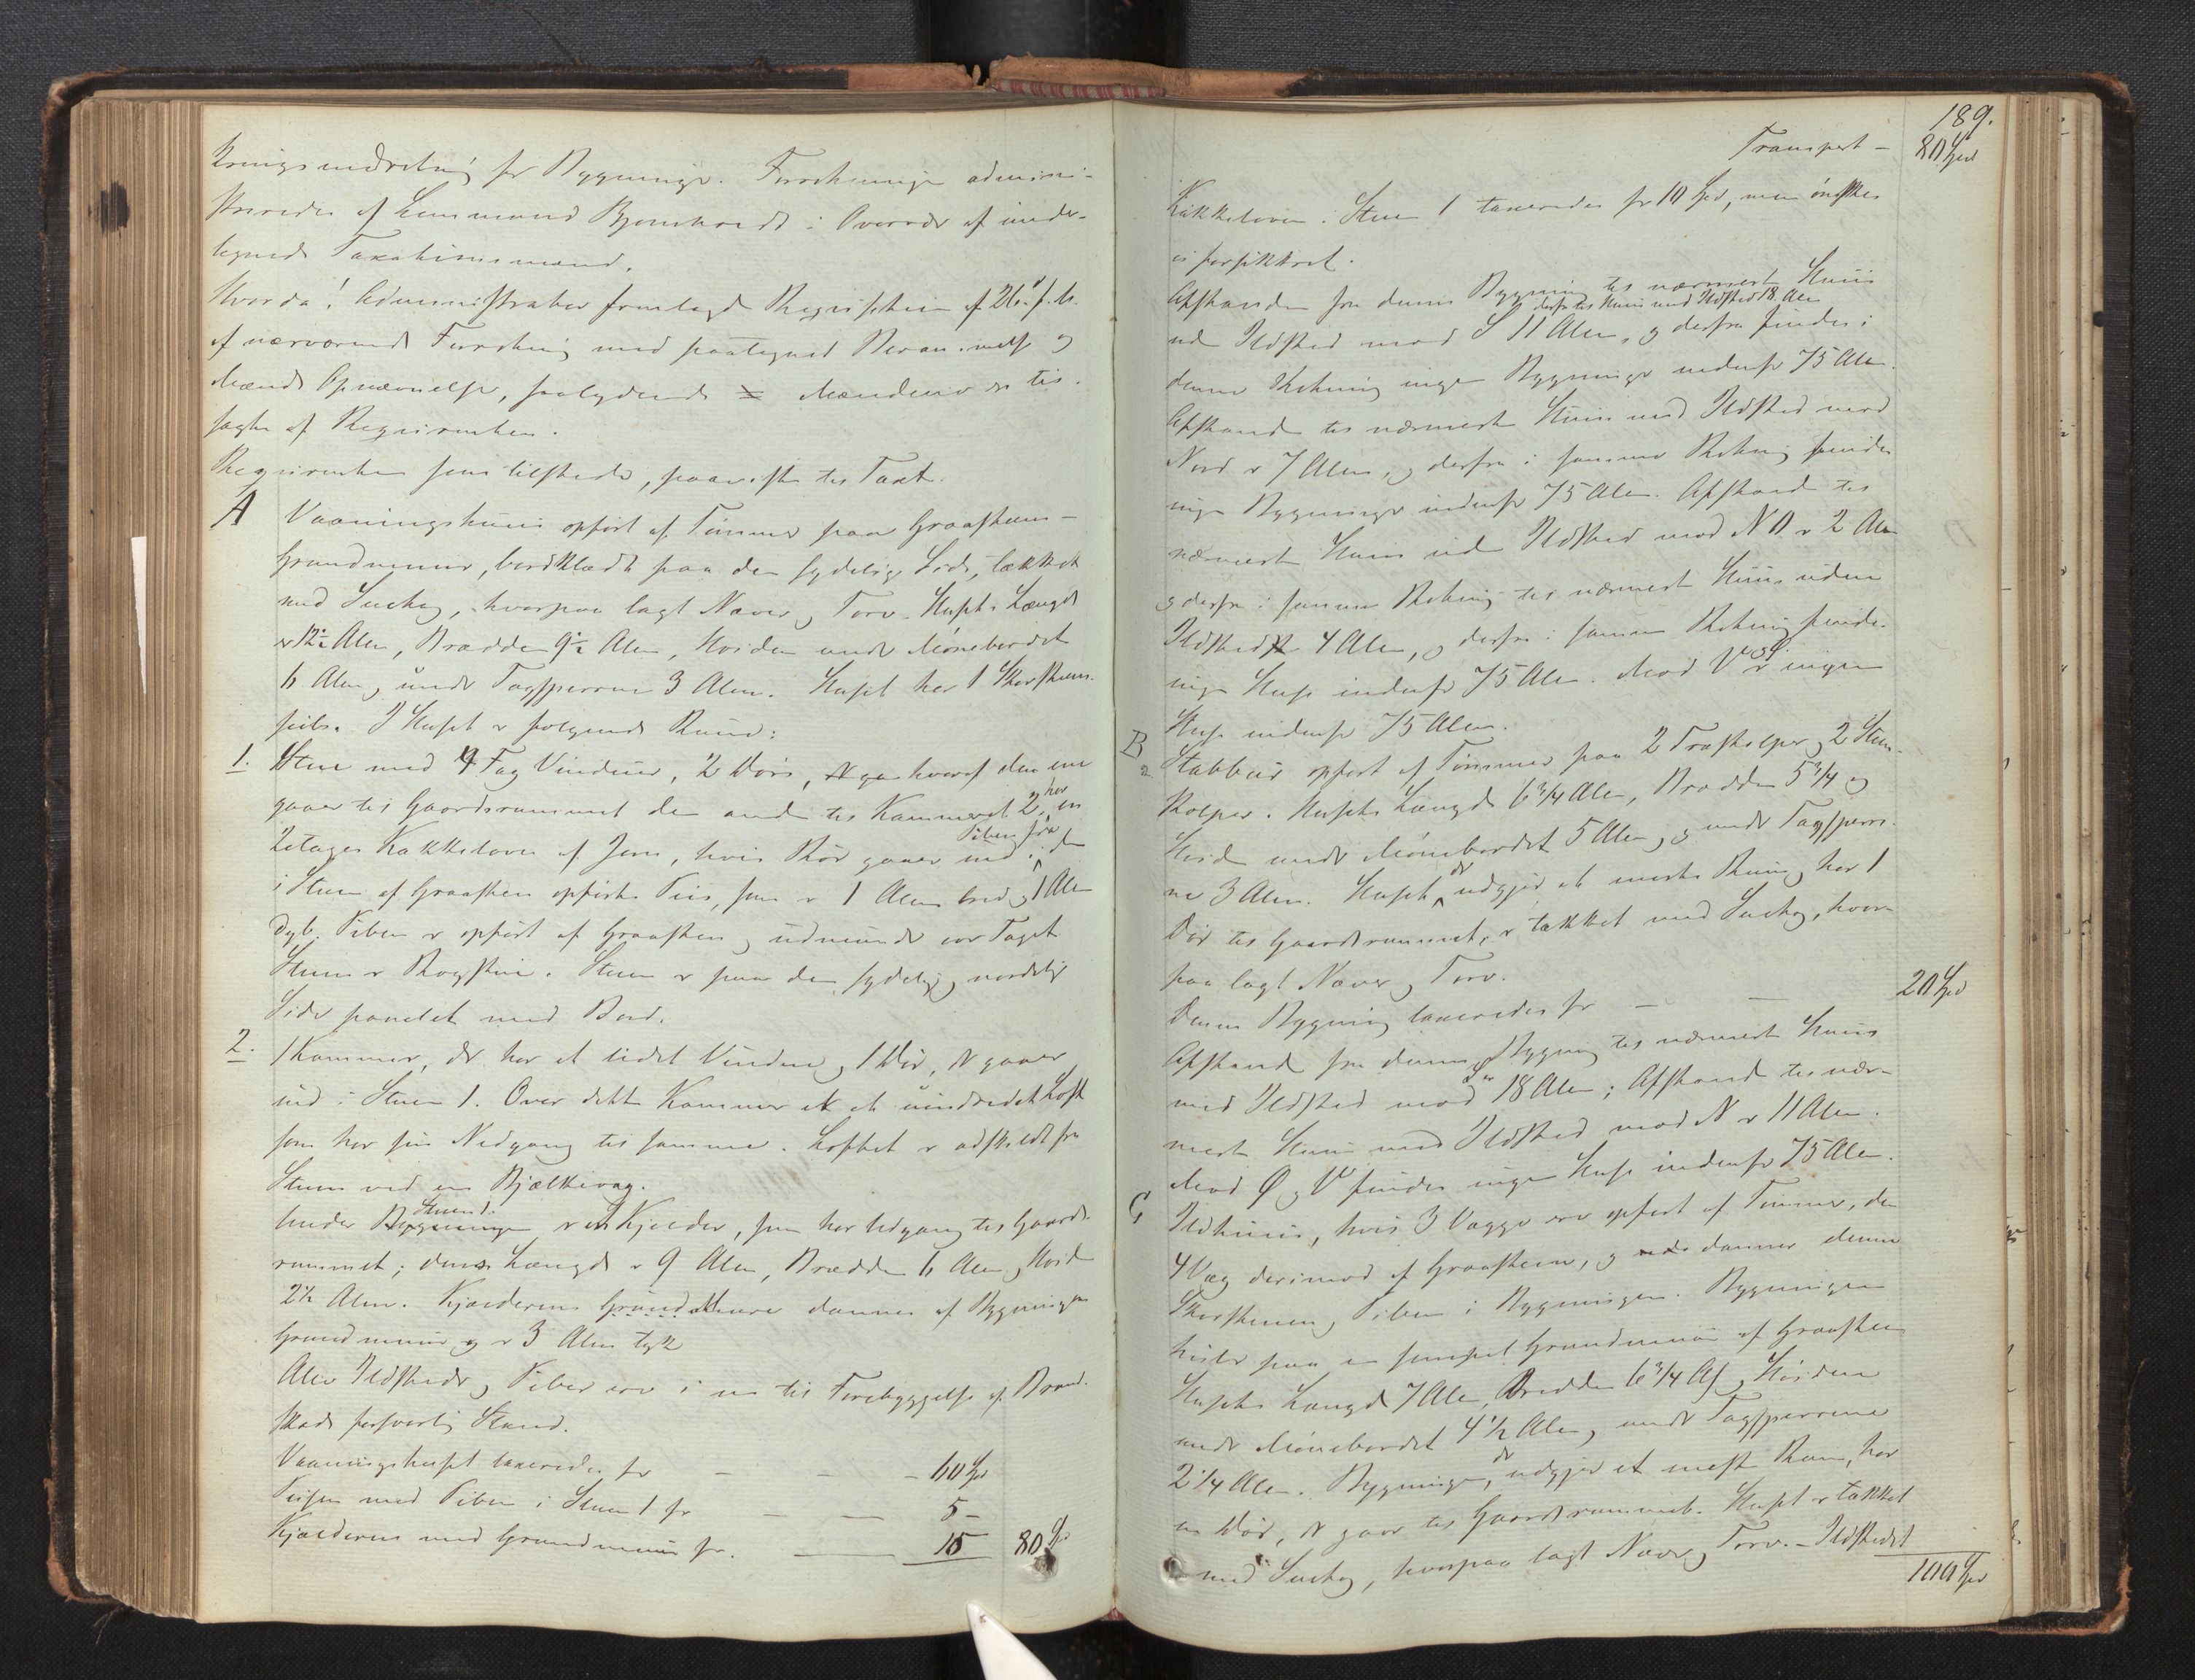 kringsindretning for Bygninger. Forretningen admini-
streredes af Lensmand Bjornhardt i Overvær af under-
tegnede Taxationsmænd.
Hvorda! Administrator fremlagde Requisition af 26. f. M.
af nærværende Forretning med paategnet Beram.melse og
Mænds Opnævnelse, saalydende Mændene er til-
sagte af Requirenten.
Requirenten som tilstede, paaviste til Taxt.
A Vaaningshuus opført af Tømmer paa Graasteens-
Grundmuur, bordklædt paa den sydelige Side, tækket
med Sutag, hvorpaa lagt Næver og Torv. Husets Længde
er 12½ Alen, Bredden 9½ Alen, Høiden under Mønebordet
6 Alen og under Tagsperrene 3 Alen. Huset har 1 Skorsteens-
pibe. I Huset er følgende Rum:
1. Stue med 4 Fag Vinduer, 2 Døre, hvoraf den ene
gaaer til Gaardsrummet den anden til Kammeret 2, har en
2etages Kakkelovn af Jern, hvis Rør gaaer ind i Piben fra den
i Stuen af Graasteen opførte Piis, som er 1 Alen bred og 1 Alen
dyb. Piben er opført af Graasteen og udmunder over Taget
Stuen er Røgstue. Stuen er paa den sydelige og nordlige
Side panelet med Bord.
2. 1 Kammer, der har et lidet Vindue og 1 Dør, der gaaer
ind i Stuen 1. Over dette Kammer er et uindredet Loft
som har sin Nedgang til samme. Loftet er adskildt fra
Stuen ved en Bjælkevæg.
Under Stuen 1. er et Kjælder, som har Udgang til Gaards-
rummet; dens Længde er 9 Alen, Bredde 6 Alen og Høide
2½ Alen. Kjælderens Grundmure dannes af Bygningens
Grundmuur og er 3 Alen tyk
Alle Ildsteder og Piber ere i en til Forebyggelse af Brand-
skade forsvarlig Stand.
Vaaningshuset taxeredes for – – – 60 Spd
Peisen med Piben i Stuen 1 for – – 5 –
Kjælderen med Grundmuur for – 15 80 Spd
189.
Transport – 80 Spd
Kakkelovn i Stuen 1 taxeredes for 10 Spd, men ønskes
ei forsikkret.
Afstanden fra denne Bygning til nærmeste Huus
uden Ildsted mod S 11 Alen, og derfra til Huus med Ildsted 18 Alen og derfra findes i
denne Retning ingen Bygninger indenfor 75 Alen.
Afstanden til nærmeste Huus med Ildsted mod
Nord er 7 Alen, og derfra i samme Retning findes
ingen Bygninger indenfor 75 Alen. Afstand til
nærmeste Huus uden Ildsted mod N O er 2 Alen
og derfra i samme Retning til nærmeste Huus uden
Ildsted 4 Alen, og derfra i samme Retning findes
ingen Huse indenfor 75 Alen. Mod V og Ø er ingen
Huse indenfor 75 Alen.
B Stabbur opført af Tømmer paa 2 Træstolper og 2 Steen-
stolper. Husets Længde 6 3/4 Alen, Bredden 5 3/4 og
Høiden under Mønebordet 5 Alen, og under Tagsperre-
ne 3 Alen. Huset, der udgjør et eneste Rum og har 1
Dør til Gaardsrummet, er tækket med Sutag, hvor-
paa lagt Næver og Torv.
Denne Bygning taxeredes for – – 20 Spd
Afstand fra denne Bygning til nærmeste Huus
med Ildsted mod S er 18 Alen; Afstand til nær-
meste Huus med Ildsted mod N er 11 Alen.
Mod Ø og V findes ingen Huse indenfor 75 Alen.
C Ildhuus, hvis 3 Vægge ere opført af Tømmer, den
4 Væg derimod af Graasteen, og danner denne
Skorsteenen og Piben i Bygningen. Bygningen
hviler paa en simpel Grundmuur af Graasteen
Husets Længde 7 Alen, Bredden 6 3/4 Al og Høiden
under Mønebordet 4 1/2 Alen, under Tagsperrene
2 1/4 Alen. Bygningen, der udgjør et eneste Rum, har
en Dør, der gaar til Gaardsrummet. Huset er tækket
med Sutag, hvorpaa lagt Næver og Torv. – Ildstedet
100 Spd